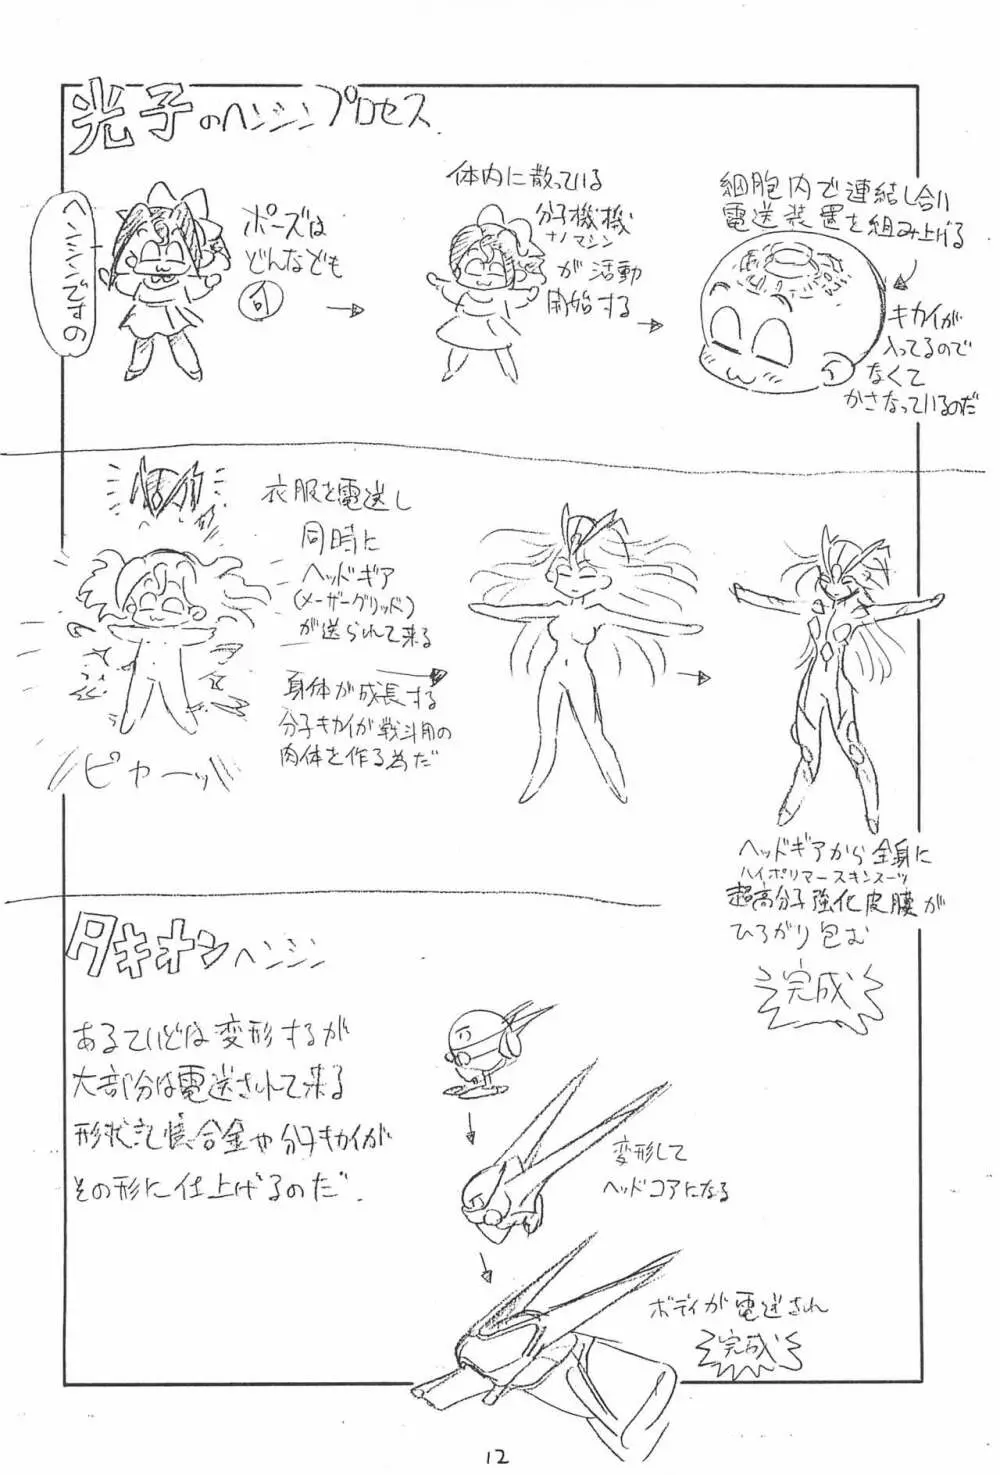 光子のヘンシンプロセス
ヘンシンですの
ポーズは
どんなでも
可
体内に散っている
分子機機
ナノマシン
が活動
開始する
細胞内で連結し合い
電送装置を組み上げる
キカイが
入ってるので
なくて
かさなっているのだ
衣服を電送し
同時に
ヘッドギア
(メーザーグリッド)
が送られて来る
身体が成長する
分子キカイが戦斗用の
肉体を作る為だ
ピカーッ
ヘッドギアから全身に
ハイポリマースキンスーツ
超高分子強化皮膜が
ひろがり包む
完成
タキオンヘンシン
あるていどは変形するが
大部分は電送されて来る
形状記憶合金や分子キカイが
その形に仕上げるのだ.
変形して
ヘッドコアになる
ボディが電送され
完成
12